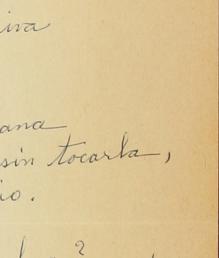 iva
ana
sin tocarla,
io.
?